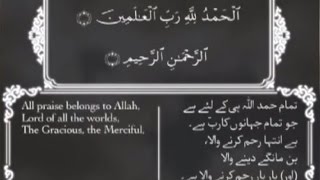 ٱلْحَمْدُ لِلَّهِ رَبِّ ٱلْعَٰلَمِينَ
ٱلرَّحْمَٰنِ ٱلرَّحِيمِ
All praise belongs to Allah,
Lord of all the worlds,
The Gracious, the Merciful,
تمام حمد اللہ ہی کے لئے ہے
جو تمام جہانوں کا ربّ ہے۔
بے انتہا رحم کرنے والا،
بن مانگے دینے والا
(اور) بار بار رحم کرنے والا ہے۔